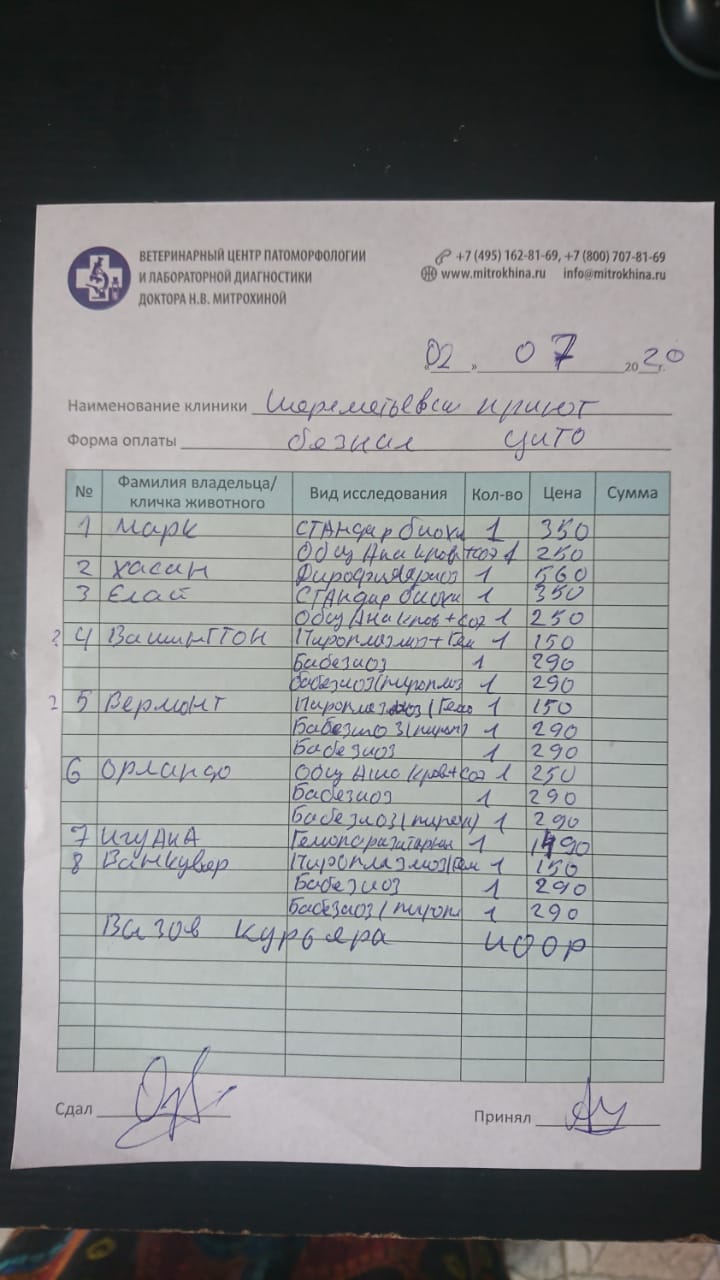 ВЕТЕРИНАРНЫЙ ЦЕНТР ПАТОМОРФОЛОГИИ
И ЛАБОРАТОРНОЙ ДИАГНОСТИКИ
ДОКТОРА Н.В. МИТРОХИНОЙ
+7 (495) 162-81-69, +7 (800) 707-81-69
www.mitrokhina.ru info@mitrokhina.ru
«02» 07 2020г.
Наименование клиники Шереметьевск приют
Форма оплаты безнал цито
№ Фамилия владельца/ кличка животного Вид исследования Кол-во Цена Сумма
1 Марк Стандар биохи 1 350
Общ Ана кров+соэ 1 250
2 Хасан Дирофиляриоз 1 560
3 Елай Стандар биохи 1 350
Общ Ана кров+соэ 1 250
? 4 Вашингтон Пироплазмоз+Гем 1 150
Бабезиоз 1 290
бабезиоз(пироплаз 1 290
2 5 Вермонт Пироплазмоз(Гемо 1 150
Бабезиоз(пироп) 1 290
Бабезиоз 1 290
6 Орландо Общ Ана (кров+соэ 1 250
Бабезиоз 1 290
Бабезиоз(пироп) 1 290
7 Игуана Гемопаразитарн 1 1490
8 Ванкувер Пироплазмоз(Гем 1 150
Бабезиоз 1 290
Бабезиоз(пироп 1 290
Вазов курьера 400р
Сдал
Принял